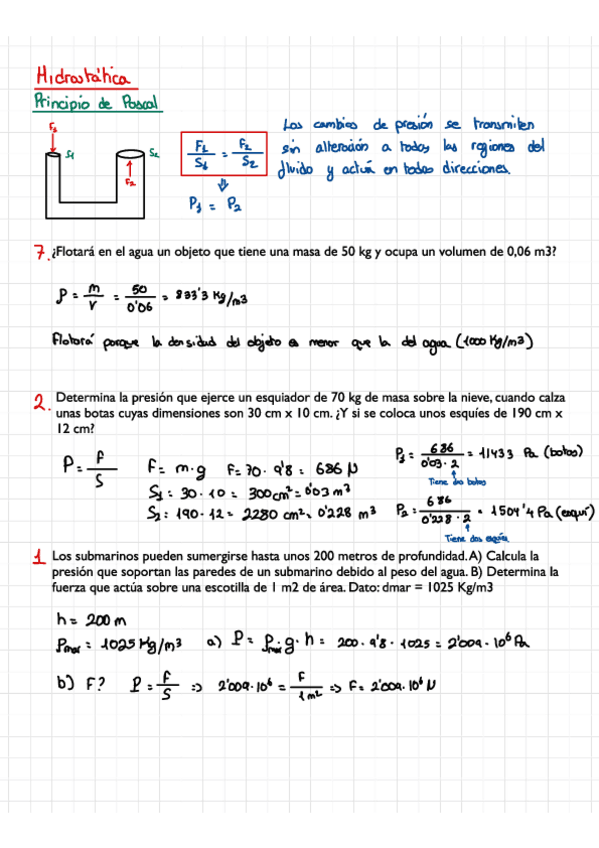 Hidrostática
Principio de Pascal
F1
S1
S2
F2
F1/S1 = F2/S2
P1 = P2
Los cambios de presión se transmiten
sin alteración a todas las regiones del
fluido y actúa en todas direcciones.
7. ¿Flotará en el agua un objeto que tiene una masa de 50 kg y ocupa un volumen de 0,06 m3?
ρ = m/V = 50/0'06 = 833'3 Kg/m3
Flotará porque la densidad del objeto es menor que la del agua (1000 Kg/m3)
2. Determina la presión que ejerce un esquiador de 70 kg de masa sobre la nieve, cuando calza
unas botas cuyas dimensiones son 30 cm x 10 cm. ¿Y si se coloca unos esquíes de 190 cm x
12 cm?
P = F/S
F = m·g F = 70 · 9'8 = 686 N
S1 = 30 · 10 = 300 cm2 = 0'03 m2
S2 = 190 · 12 = 2280 cm2 = 0'228 m2
P1 = 686/0'03 · 2 = 11433 Pa (botas)
Tiene dos botas
P2 = 686/0'228 · 2 = 1504'4 Pa (esquí)
Tiene dos esquís
1 Los submarinos pueden sumergirse hasta unos 200 metros de profundidad. A) Calcula la
presión que soportan las paredes de un submarino debido al peso del agua. B) Determina la
fuerza que actúa sobre una escotilla de 1 m2 de área. Dato: dmar = 1025 Kg/m3
h = 200 m
ρmar = 1025 Kg/m3 a) P = ρmar · g · h = 200 · 9'8 · 1025 = 2'009 · 10^6 Pa
b) F? P = F/S => 2'009 · 10^6 = F/1 m2 => F = 2'009 · 10^6 N